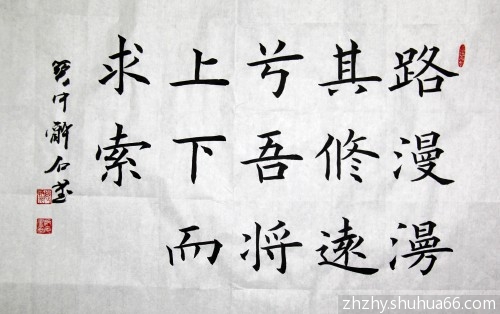 路漫漫
其修遠
兮吾將
上下而
求索
zhzhy.shuhua66.com